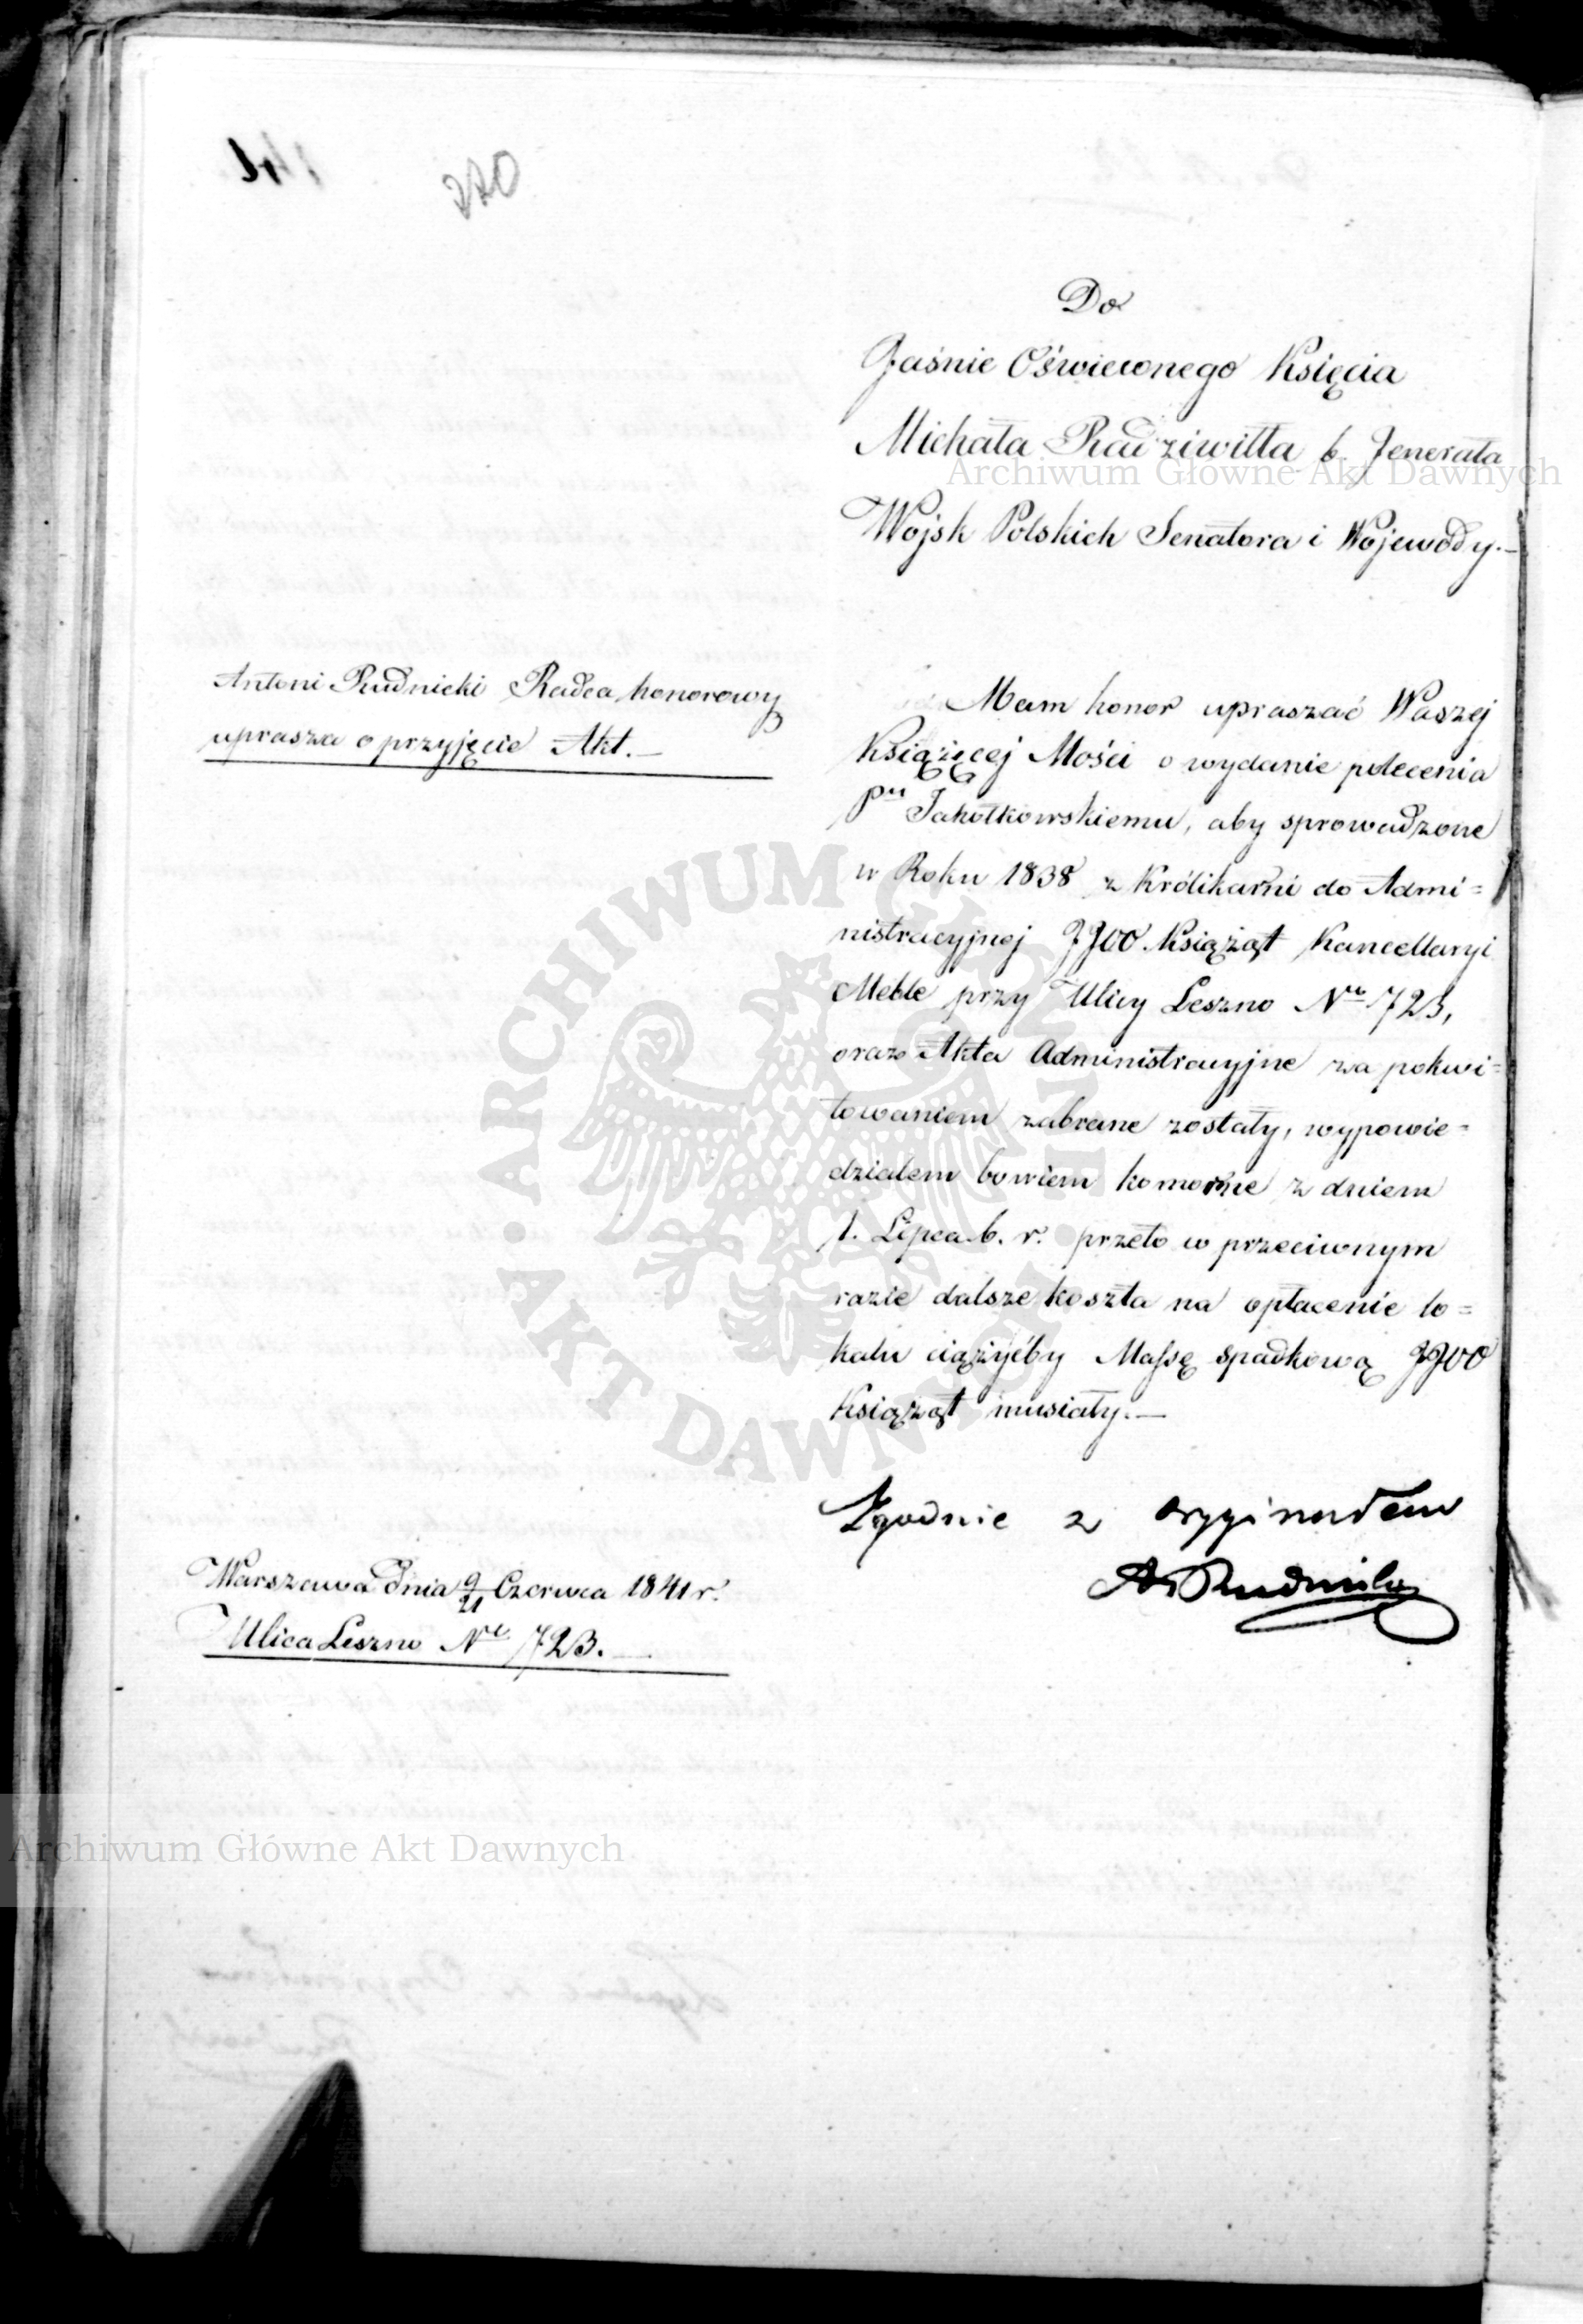 270
Do
Jaśnie Oświeconego Księcia
Michała Radziwiłła b. Jenerała
Wojsk Polskich Senatora i Wojewody.—
Antoni Rudnicki Radca honorowy
uprasza o przyjęcie Akt.—
Mam honor upraszać Waszej
Książęcej Mości o wydanie polecenia
Pnu Jakołkowskiemu, aby sprowadzone
w Roku 1838 z Królikarni do Admi=
nistracyjnej JJOO. Książąt Kancellaryi
Meble przy Ulicy Leszno Nro 723,
oraz Akta Administracyjne za pokwi=
towaniem zabrane zostały, wypowie=
działem bowiem komorne z dniem
1. Lipca b. r. przeto w przeciwnym
razie dalsze koszta na opłacenie lo=
kalu ciążyćby Massę spadkową JJOO
Książąt musiały.—
Zgodnie z oryginałem
A Rudnicki
Warszawa dnia 9/21 Czerwca 1841 r.
Ulica Leszno Nro 723.—
Archiwum Główne Akt Dawnych
Archiwum Główne Akt Dawnych
· ARCHIWUM GŁÓWNE · AKT DAWNYCH